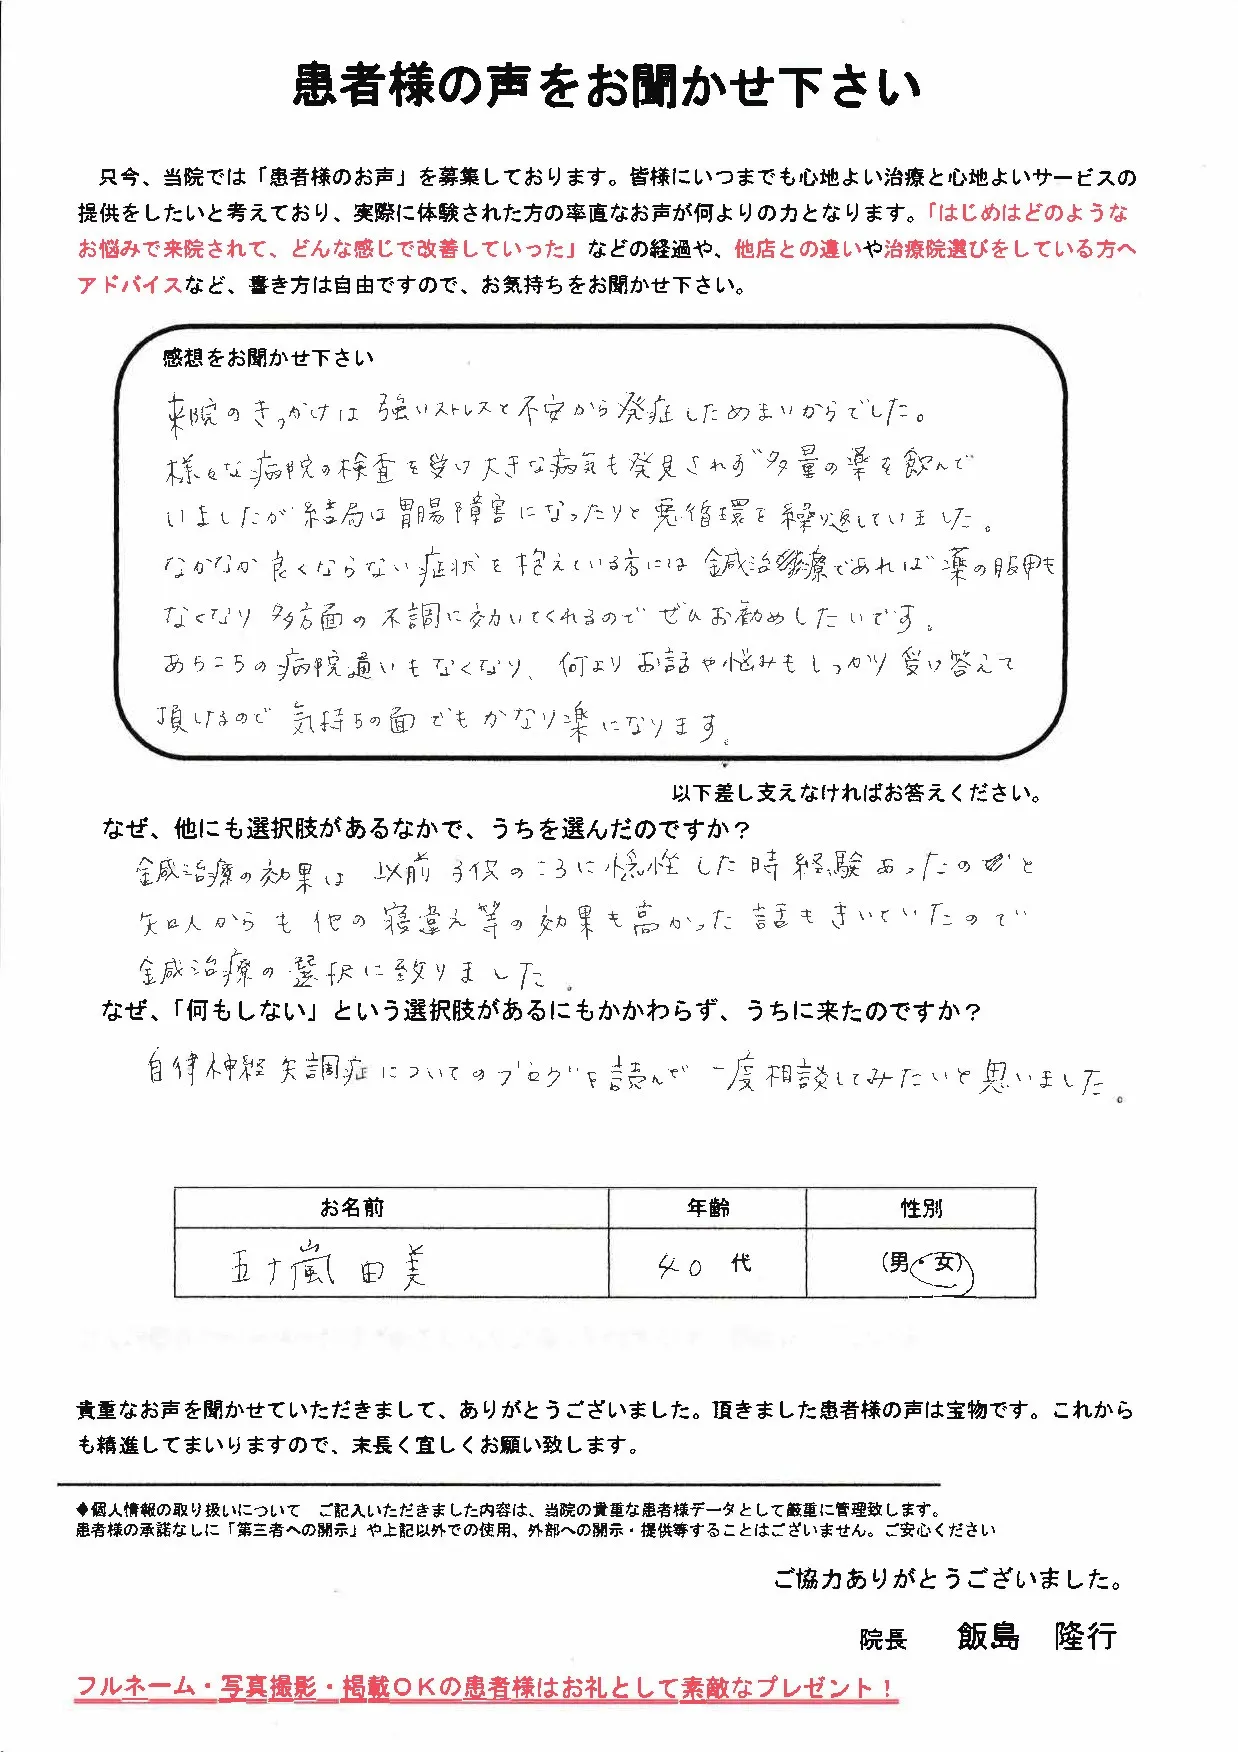 患者様の声をお聞かせ下さい
只今、当院では「患者様のお声」を募集しております。皆様にいつまでも心地よい治療と心地よいサービスの
提供をしたいと考えており、実際に体験された方の率直なお声が何よりの力となります。「はじめはどのような
お悩みで来院されて、どんな感じで改善していった」などの経過や、他店との違いや治療院選びをしている方へ
アドバイスなど、書き方は自由ですので、お気持ちをお聞かせ下さい。
感想をお聞かせ下さい
来院のきっかけは 強いストレスと不安から発症しためまいからでした。
様々な病院の検査を受け大きな病気も発見されず多量の薬を飲んで
いましたが結局は胃腸障害になったりと悪循環を繰り返していました。
なかなか良くならない症状を抱えている方には鍼治療であれば薬の服用も
なくなり多方面の不調に効いてくれるのでぜひお勧めしたいです。
あちこちの病院通いもなくなり、何よりお話や悩みもしっかり受け答えて
頂けるので気持ちの面でもかなり楽になります。
以下差し支えなければお答えください。
なぜ、他にも選択肢があるなかで、うちを選んだのですか？
鍼治療の効果は 以前 子供のころに した時 経験あったのと
知人からも他の寝違え等の効果も高かった話もきいていたので
鍼治療の選択に致りました。
なぜ、「何もしない」という選択肢があるにもかかわらず、うちに来たのですか？
自律神経失調症についてのブログを読んで一度相談してみたいと思いました。
お名前 年齢 性別
五十嵐 由美 40 代 (男・女)
貴重なお声を聞かせていただきまして、ありがとうございました。頂きました患者様の声は宝物です。これから
も精進してまいりますので、末長く宜しくお願い致します。
◆個人情報の取り扱いについて ご記入いただきました内容は、当院の貴重な患者様データとして厳重に管理致します。
患者様の承諾なしに「第三者への開示」や上記以外での使用、外部への開示・提供等することはございません。ご安心ください
ご協力ありがとうございました。
院長 飯島 隆行
フルネーム・写真撮影・掲載ＯＫの患者様はお礼として素敵なプレゼント！